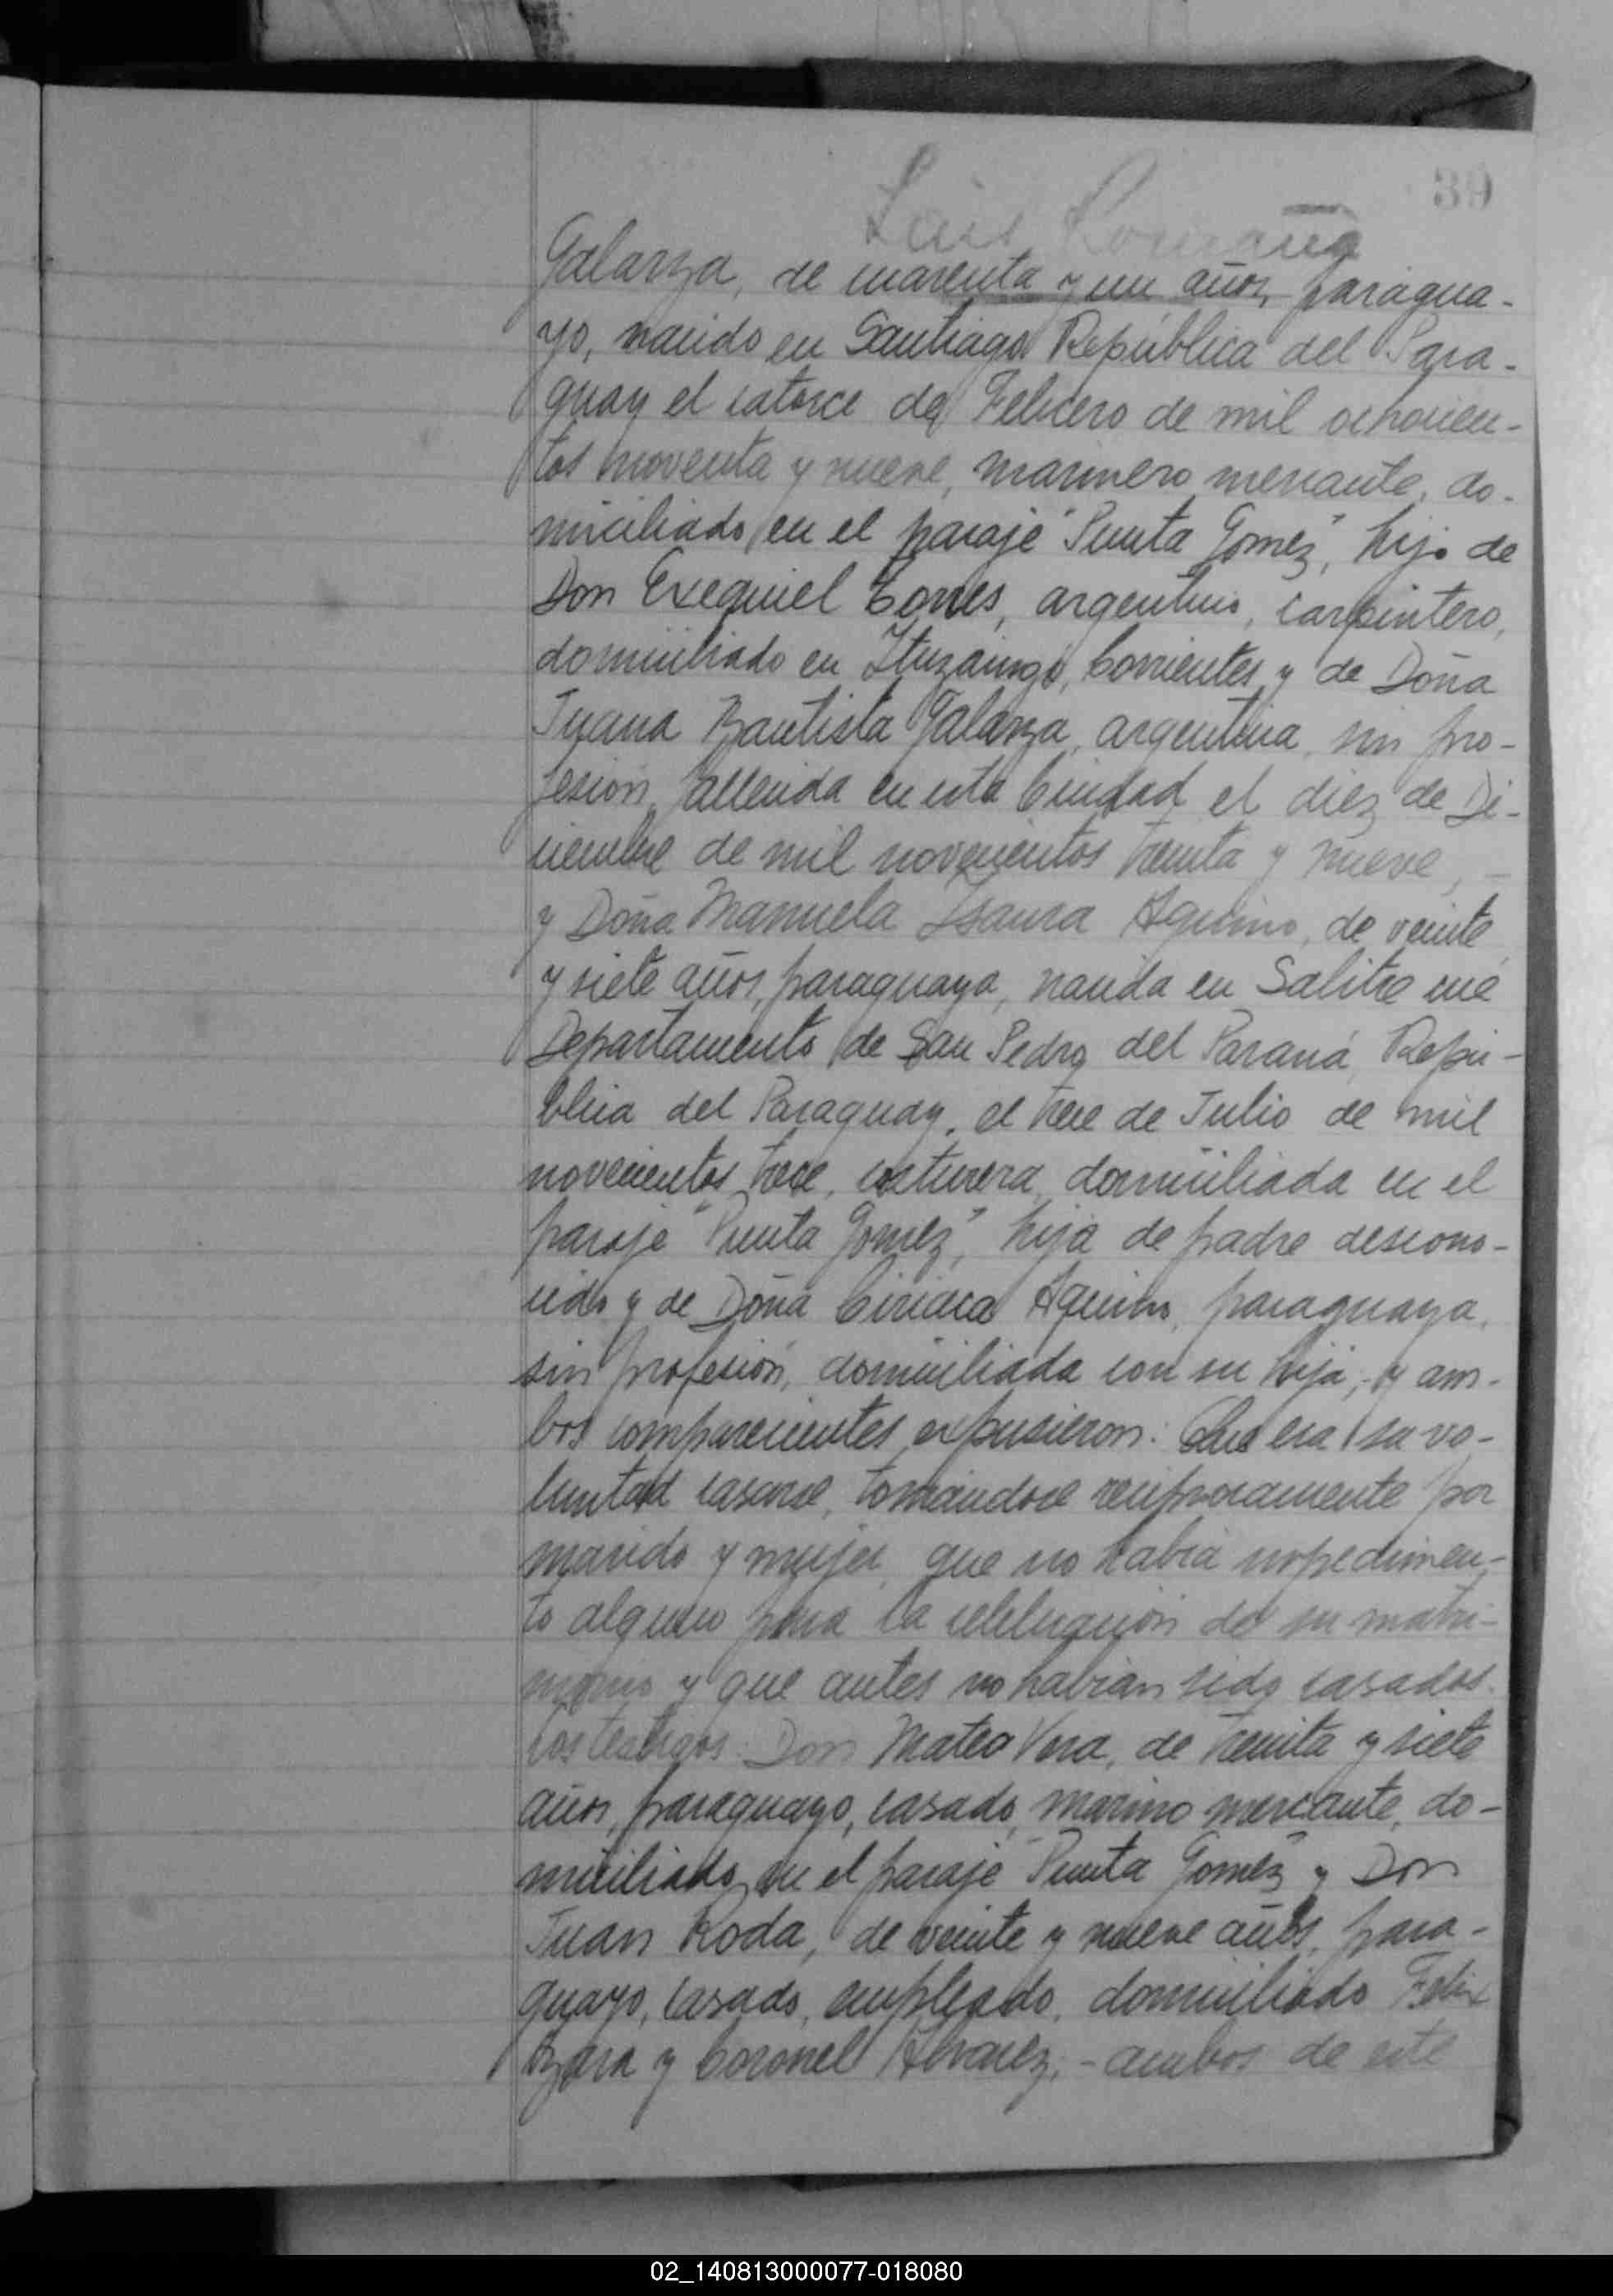 39
Luis Romaña
Galarza, de cuarenta y un años, paragua-
yo, nacido en Santiago República del Para-
guay el catorce de Febrero de mil ochocien-
tos noventa y nueve, marinero mercante, do-
miciliado en el paraje "Punta Gomez", hijo de
Don Exequiel Torres, argentino, carpintero,
domiciliado en Ituzaingó, Corrientes y de Doña
Juana Bautista Galarza, argentina, sin pro-
fesión, fallecida en esta Ciudad el diez de Di-
ciembre de mil novecientos treinta y nueve, -
y Doña Manuela Isaura Aquino, de veinte
y siete años, paraguaya, nacida en Salitre cué
Departamento de San Pedro del Paraná, Repú-
blica del Paraguay, el trece de Julio de mil
novecientos trece, costurera, domiciliada en el
paraje "Punta Gomez", hija de padre descono-
cido y de Doña Ciriaca Aquino, paraguaya,
sin profesión, domiciliada con su hija; - y am-
bos comparecientes expusieron: Que era su vo-
luntad casarse, tomándose recíprocamente por
marido y mujer, que no había impedimen-
to alguno para la celebración de su matri-
monio y que antes no habían sido casados.
Los testigos: Don Mateo Vera, de treinta y siete
años, paraguayo, casado, marino mercante, do-
miciliado en el paraje "Punta Gomez" y Don
Juan Roda, de veinte y nueve años, para-
guayo, casado, empleado, domiciliado Felix
Azara y Coronel Alvarez; - ambos de este
02_140813000077-018080